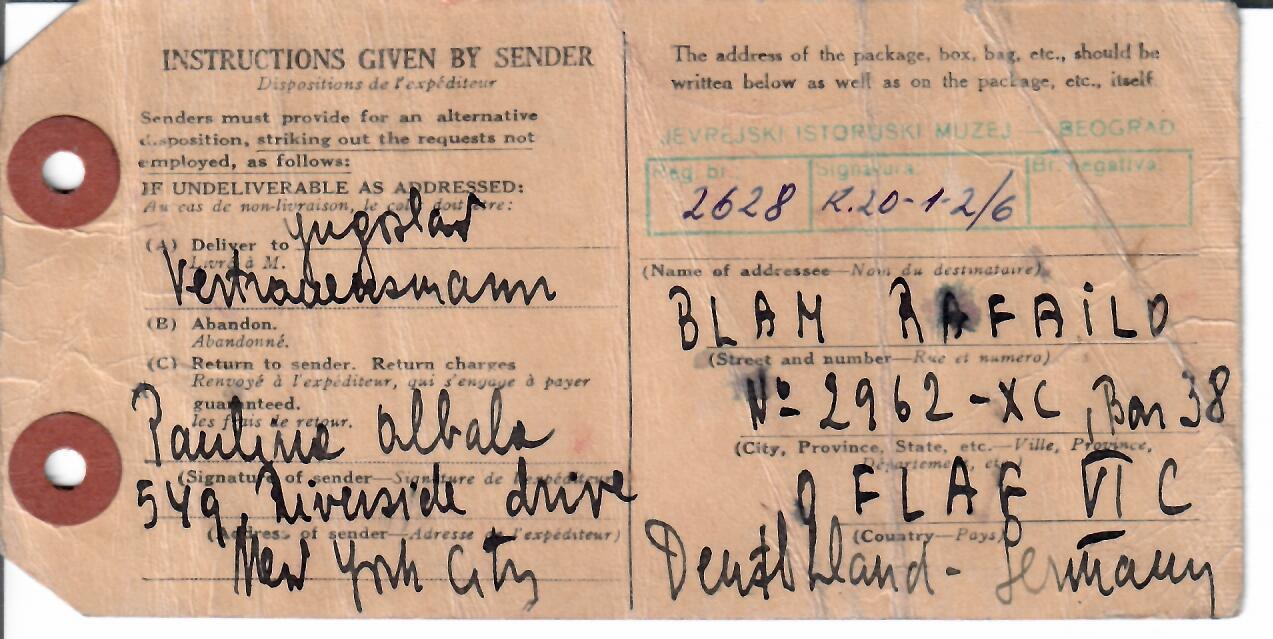 INSTRUCTIONS GIVEN BY SENDER
Dispositions de l'expéditeur
Senders must provide for an alternative
disposition, striking out the requests not
employed, as follows:
IF UNDELIVERABLE AS ADDRESSED:
Au cas de non-livraison, le colis doit être:
(A) Deliver to Yugoslav
Livré à M.
Vertrauensmann
(B) Abandon.
Abandonné.
(C) Return to sender. Return charges
Renvoyé à l'expéditeur, qui s'engage à payer
guaranteed.
les frais de retour.
Paulina Albala
(Signature of sender—Signature de l'expéditeur)
549, Riverside drive
(Address of sender—Adresse de l'expéditeur)
New York City
The address of the package, box, bag, etc., should be
written below as well as on the package, etc., itself
JEVREJSKI ISTORIJSKI MUZEJ — BEOGRAD
Reg. br.: Signatura: Br. negativa:
2628 K.20-1-2/6
(Name of addressee—Nom du destinataire)
BLAM RAFAILO
(Street and number—Rue et numéro)
No 2962-XC, Bar 38
(City, Province, State, etc.—Ville, Province,
Département, etc.
OFLAG VI C
(Country—Pays)
Deutschland - Germany